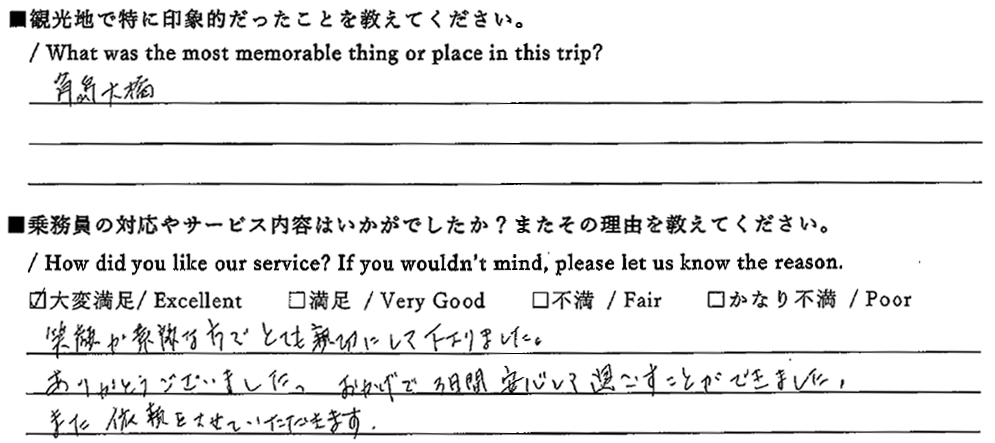 ■観光地で特に印象的だったことを教えてください。
/ What was the most memorable thing or place in this trip?
角島大橋
■乗務員の対応やサービス内容はいかがでしたか？またその理由を教えてください。
/ How did you like our service? If you wouldn't mind, please let us know the reason.
☑大変満足/ Excellent □満足 / Very Good □不満 / Fair □かなり不満 / Poor
笑顔が素敵な方でとても親切にして下さりました。
ありがとうございました。おかげで3日間安心して過ごすことができました。
また依頼をさせていただきます.